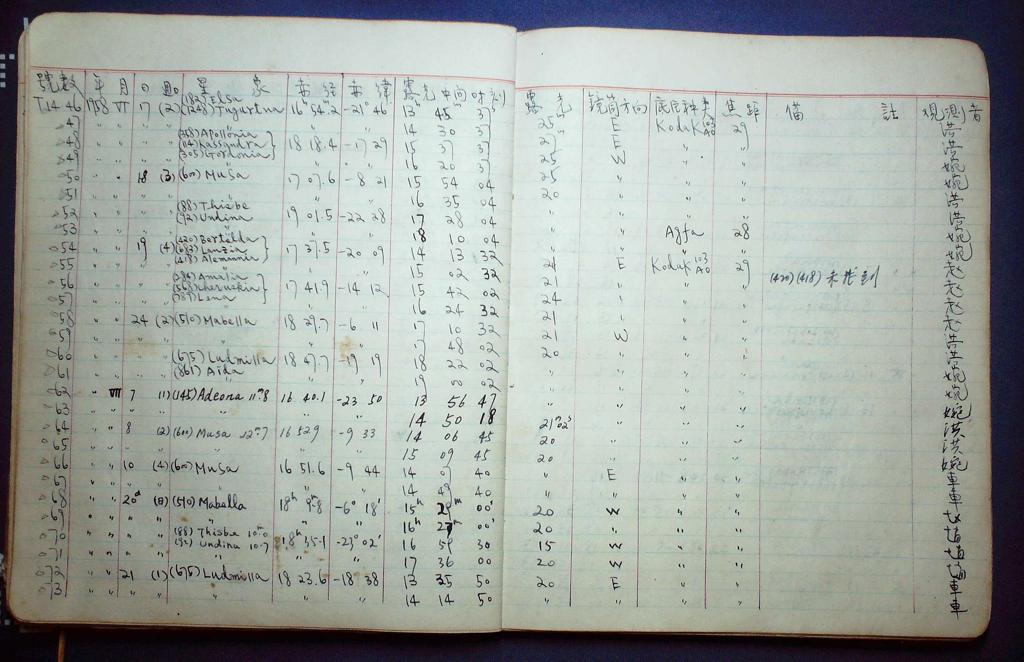 號數 年 月 日 週 星 象 赤經 赤緯 露光中間時刻 露光 鏡筒方向 底片種類 焦距 備 註 觀測者
(182) Elsa
T1446 1958 VI 17 (2) (1248) Jugurtha 16ʰ 54.2 -21° 46 13ʰ 45 37 25ᵐ E Kodak 103 A0 29 洪
47 " " 14 30 37 " " 洪
48 " " (358) Apollonia (114) Kassandra (305) Gordonia 18 18.4 -17 29 15 37 37 E " " 洪
49 " " 16 20 37 25 W " " 婉
50 " " 18 (3) (600) Musa 17 07.6 -8 21 15 54 04 25 " " " 婉
51 " " " " " 16 35 04 20 " " " 洪
52 " " (88) Thisbe (92) Undina 19 01.5 -22 28 17 28 04 " " " 洪
53 " " " " 18 10 04 " " Agfa 28 婉
54 " " 19 (4) (420) Bertolda (683) Lanzia (418) Alemannia 17 37.5 -20 09 14 13 32 "
55 " " " " 15 02 32 21 E Kodak 103 A0 29 (420)(418) 未找到
56 " " (284) Amalia (568) Cheruskia (789) Lena 17 41.9 -14 12 15 42 02 21 " " "
57 " " " " 16 24 32 24 " " "
58 " " 24 (2) (510) Mabella 18 29.7 -6 11 17 10 32 21 " " "
59 " " " " " 17 48 02 21 W " " 洪
60 " " (675) Ludmilla (861) Aïda 18 47.7 -19 19 18 22 02 20 " " " 洪
61 " " " " 19 00 02 " " " " 婉
62 " VII 7 (1) (145) Adeona 11ᵐ8 16 40.1 -23 50 13 56 47 " " " " 婉
63 " " " " " 14 50 18 " " " " 婉
64 " " 8 (2) (600) Musa 12ᵐ7 16 52.9 -9 33 14 06 45 21ᵐ02ˢ " " " 洪
65 " " " " " 15 09 45 20 " " " 洪
66 " " 10 (4) (600) Musa 16 51.6 -9 44 14 07 40 20 " " " 婉
67 " " " " " 14 49 40 " E " " 車
68 " " 20ᵈ (8) (510) Mabella 18ʰ 9.8 -6° 18' 15ʰ 29ᵐ 00ˢ " " " " 車
69 " " " " " 16ʰ 27ᵐ 00ˢ 20 W " "
70 " " (88) Thisbe 10.0 (92) Undina 10.7 18ʰ 35.1 -23° 02' 16 59 30 20 " " "
71 " " " " 17 36 00 15 W " "
72 " " 21 (1) (675) Ludmilla 18 23.6 -18 38 13 35 50 20 W " "
73 " " " " " 14 14 50 20 E " " 車
" " " " 車